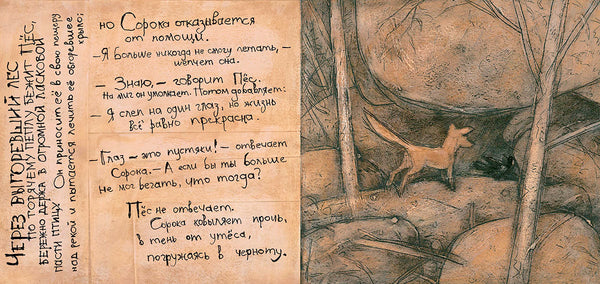 ЧЕРЕЗ ВЫГОРЕВШИЙ ЛЕС
ПО ГОРЯЧЕМУ ПЕПЛУ БЕЖИТ ПЁС,
БЕРЕЖНО ДЕРЖА В ОГРОМНОЙ ЛАСКОВОЙ
ПАСТИ ПТИЦУ. Он приносит её в свою пещеру
над рекой и пытается лечить её обгоревшее
крыло,
но Сорока отказывается
от помощи.
– Я больше никогда не смогу летать, –
шепчет она.
– Знаю, – говорит Пёс.
На миг он умолкает. Потом добавляет:
– Я слеп на один глаз, но жизнь
всё равно прекрасна.
– Глаз – это пустяки! – отвечает
Сорока. – А если бы ты больше
не мог бегать, что тогда?
Пёс не отвечает.
Сорока ковыляет прочь,
в тень от утёса,
погружаясь в черноту.